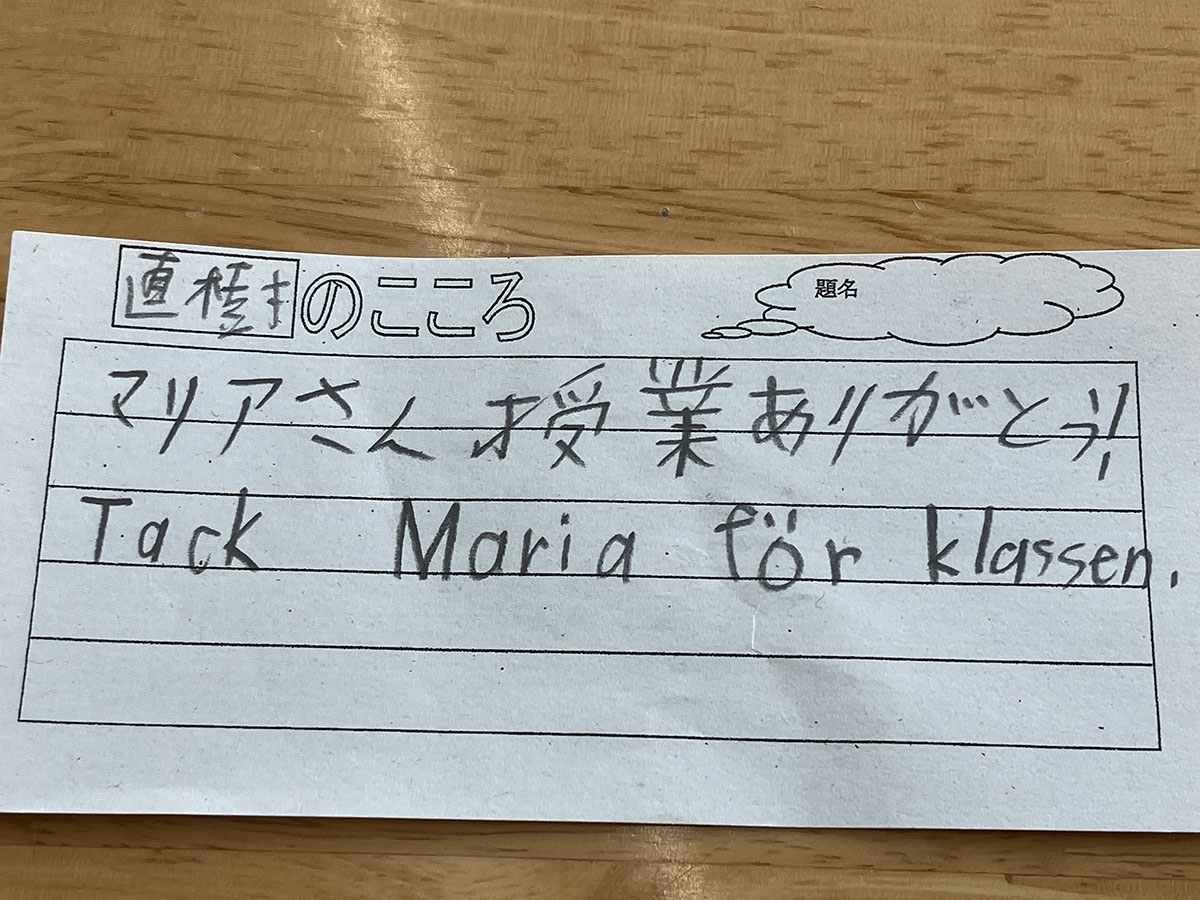 直樹のこころ
題名
マリアさん授業ありがとう!
Tack Maria för klassen.